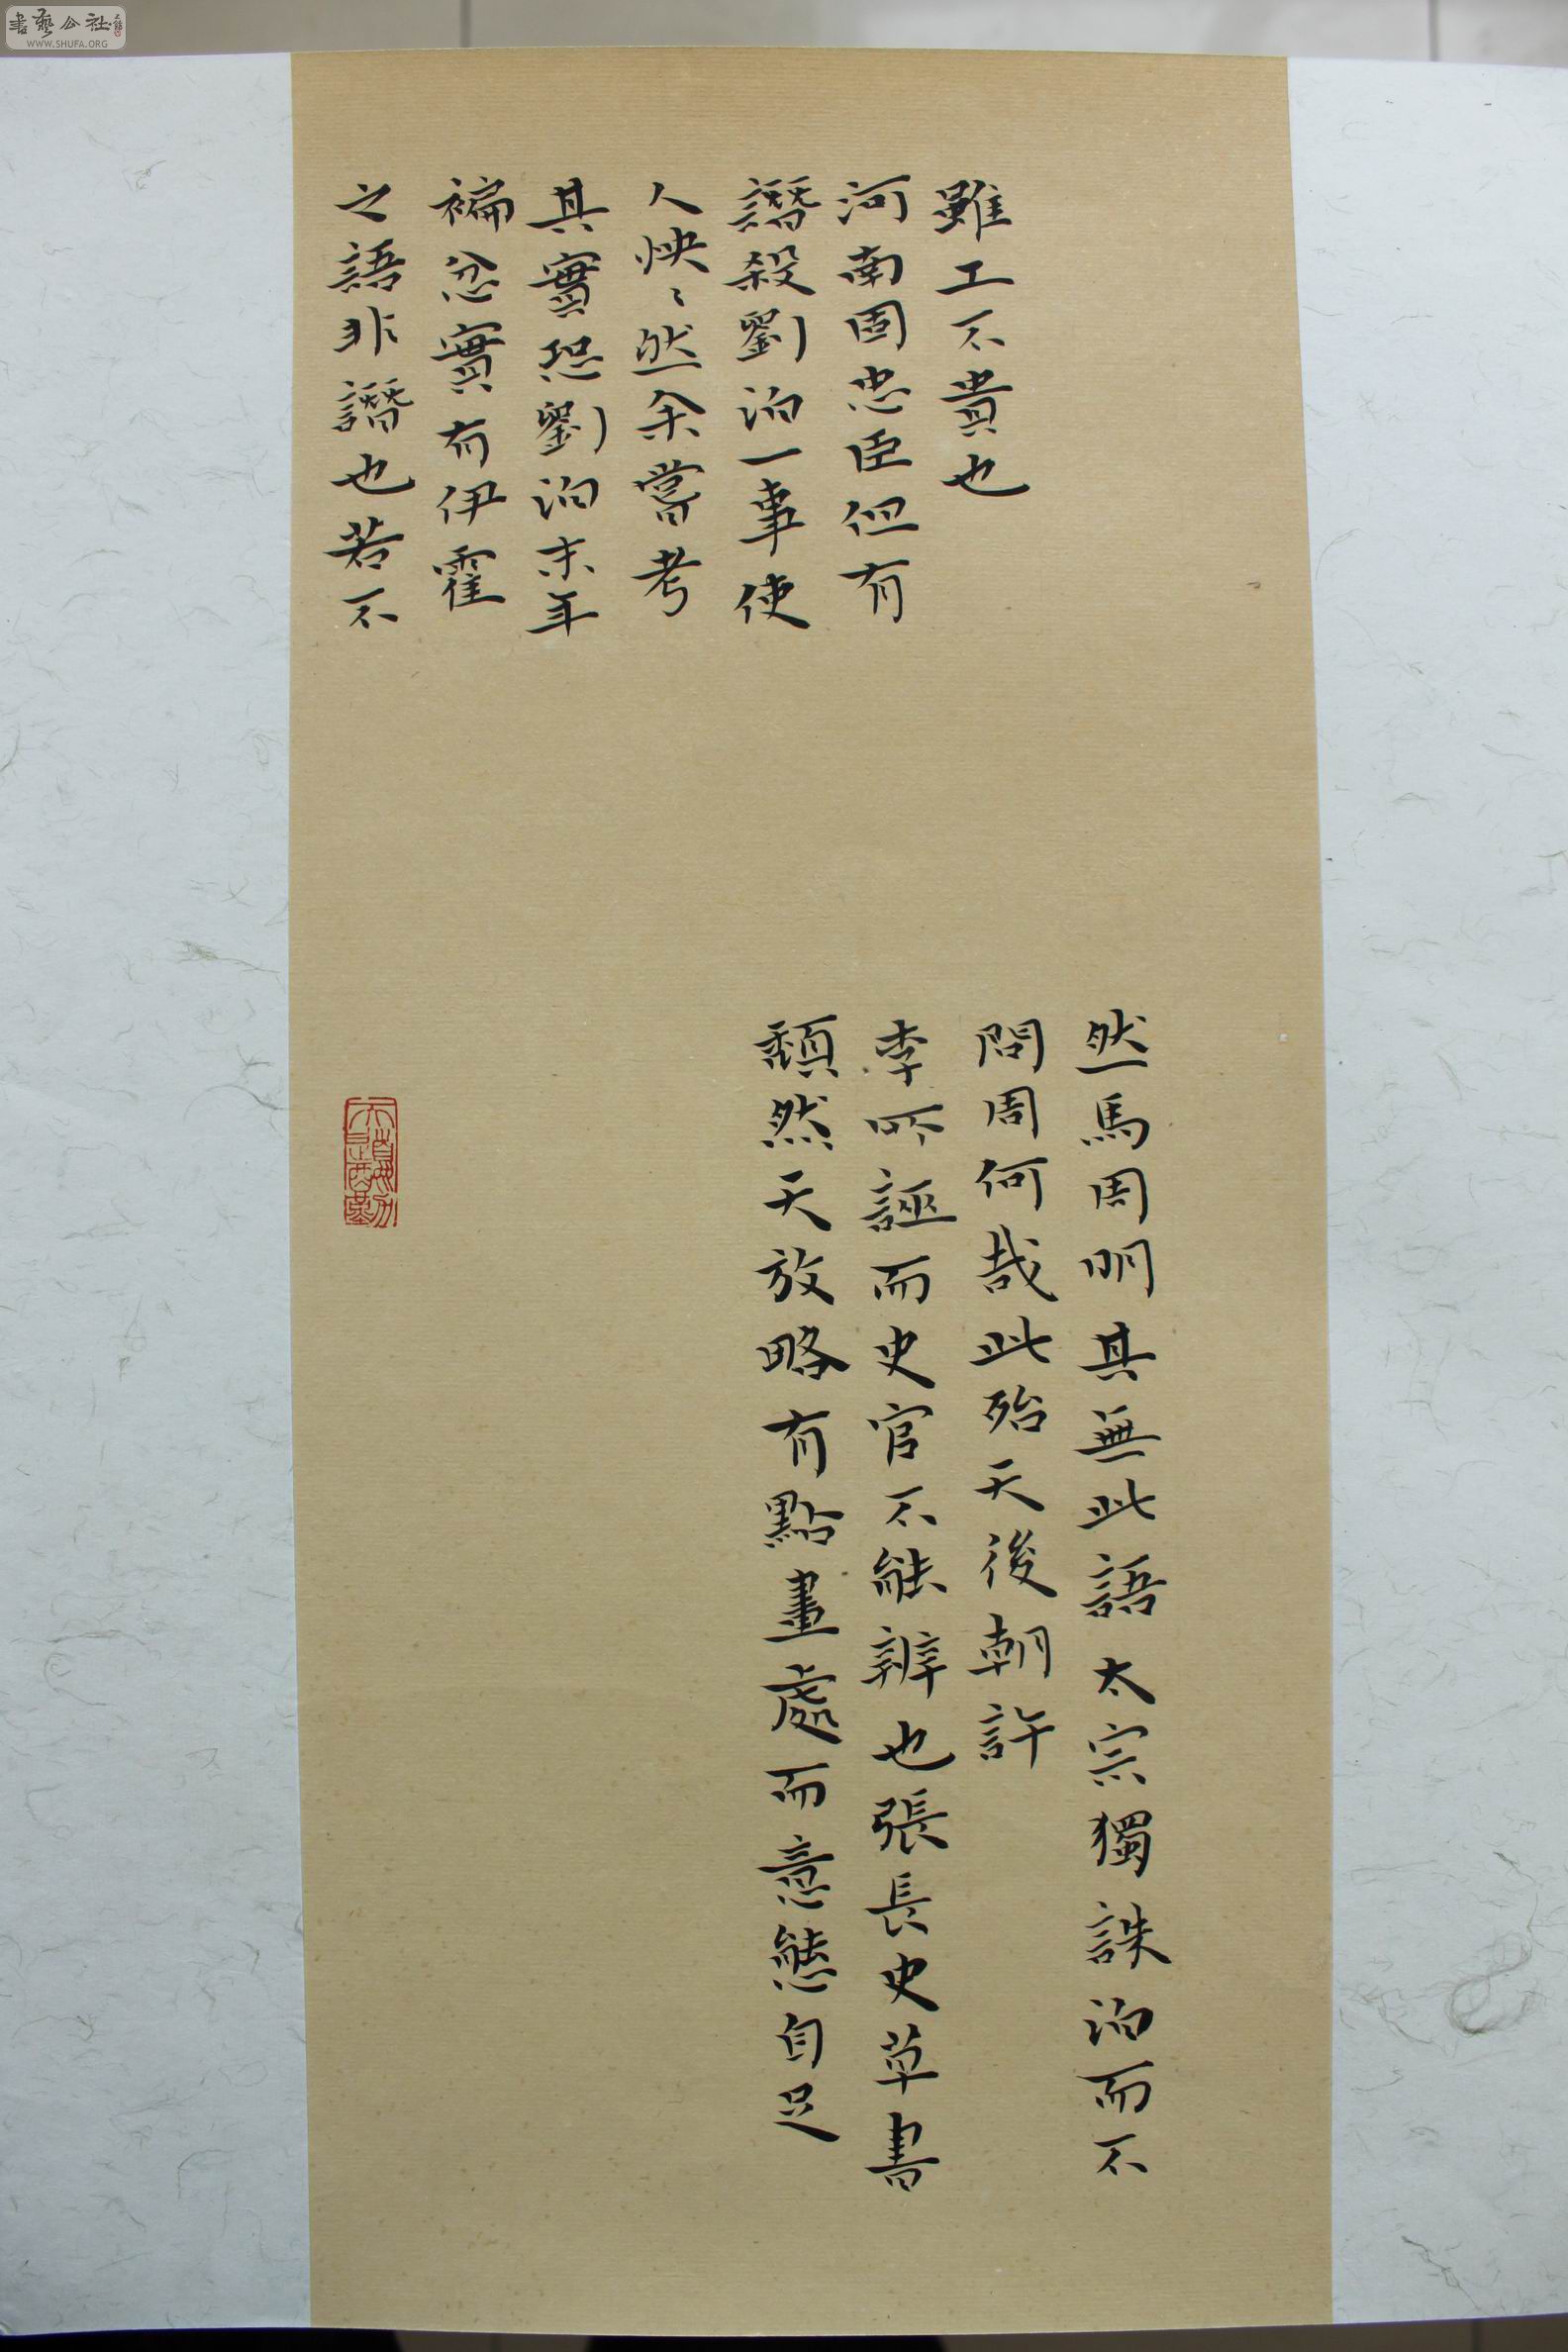 書藝公社
WWW.SHUFA.ORG
雖工不貴也
河南固忠臣但有
譖殺劉洎一事使
人怏〻然余嘗考
其實恐劉洎末年
褊忿實有伊霍
之語非譖也若不
然馬周明其無此語太宗獨誅洎而不
問周何哉此殆天後朝許
李所誣而史官不能辨也張長史草書
頹然天放略有點畫處而意態自足